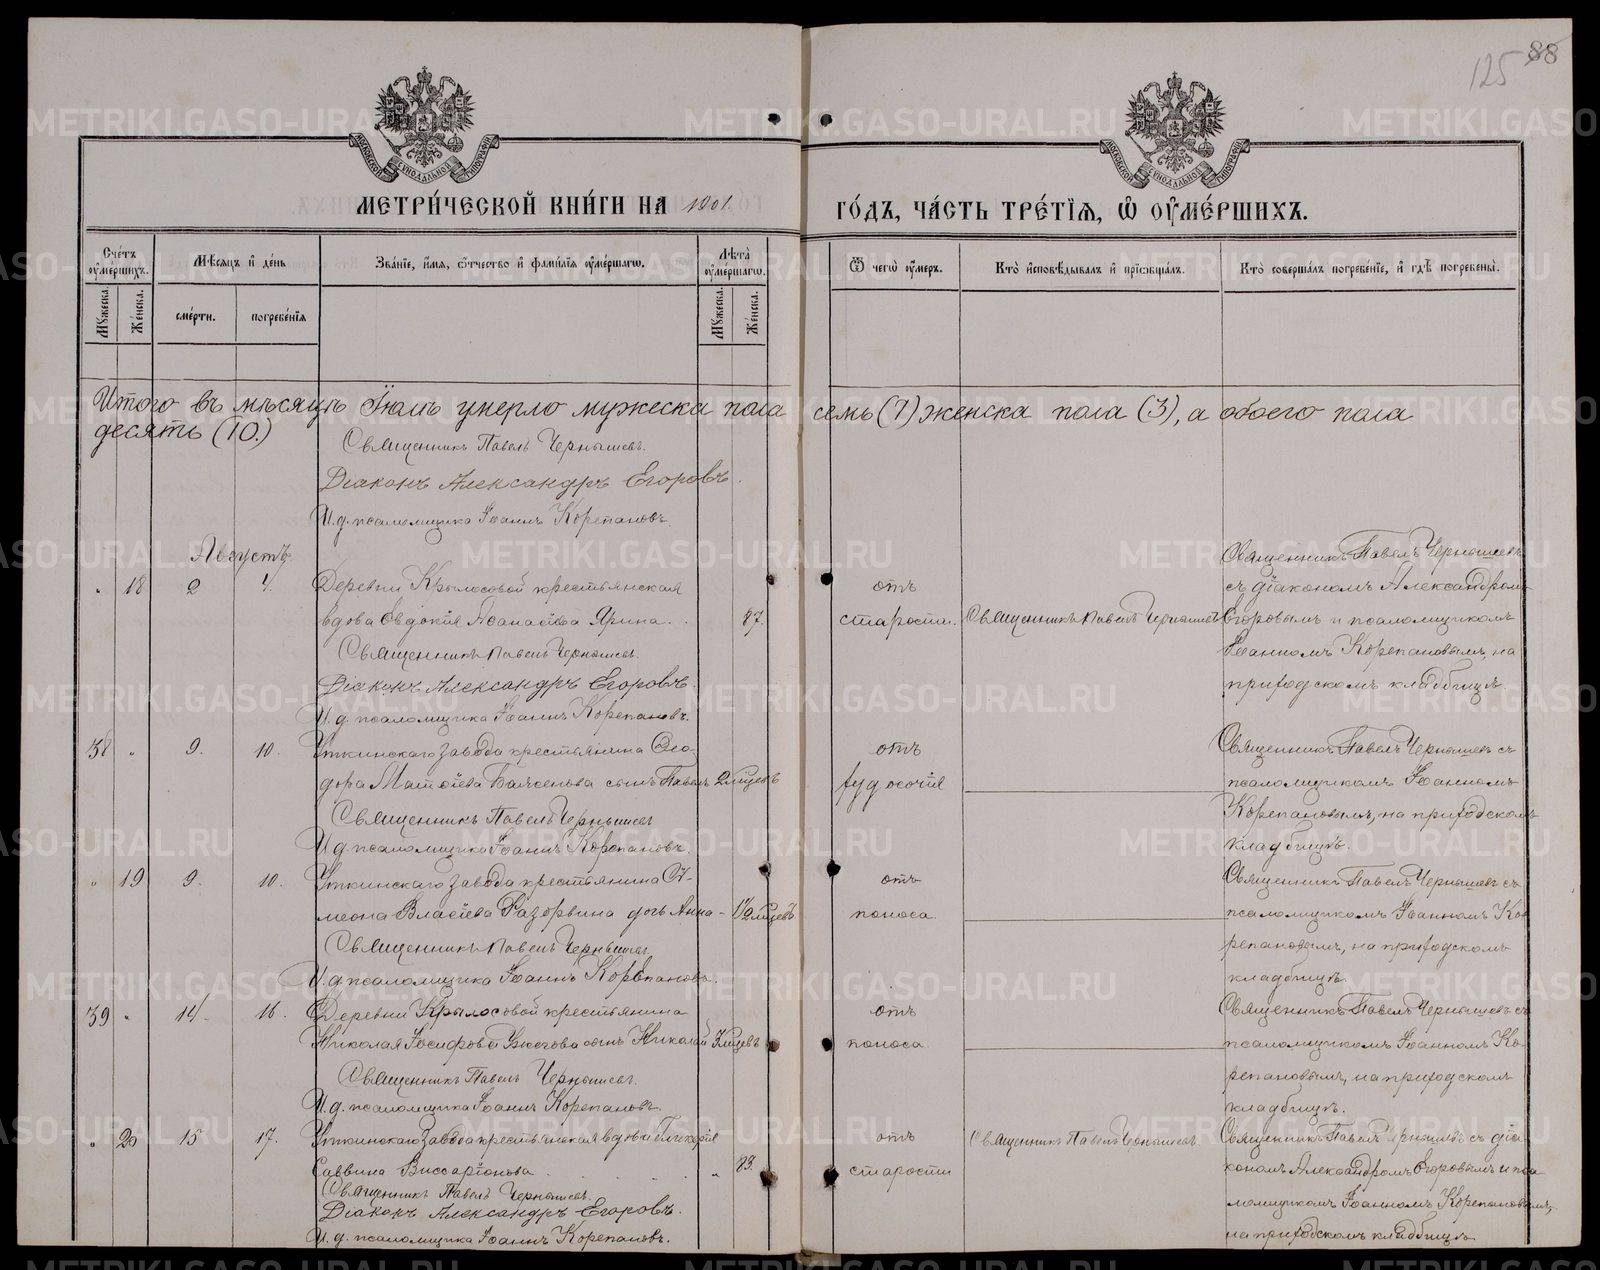 125 88
МЕТРИ́ЧЕСКОЙ КНИ́ГИ НА 1901.
ГО́ДЪ, ЧА́СТЬ ТРЕ́ТІЯ, Ѽ ОУМЕ́РШИХЪ.
Сче́тъ оуме́ршихъ.
Мѣ́сяцъ и де́нь
Зва́ніе, и́мя, о́тчество и фами́лія оуме́ршагѡ.
Лѣ́та оуме́ршагѡ.
Ѿ чегѡ̀ оу́меръ.
Кто̀ исповѣ́дывалъ и пріѡбща́лъ.
Кто̀ соверша́лъ погребе́ніе, и гдѣ̀ погребены̀.
Му́жеска.
Же́нска.
сме́рти.
погребе́нія
Му́жеска.
Же́нска.
Итого въ мѣсяцѣ Іюлѣ умерло мужеска пола семь (7) женска пола (3), а обоего пола
десять (10.)
Священникъ Павелъ Чернышевъ.
Діаконъ Александръ Егоровъ.
И. д. псаломщика Іоаннъ Корепановъ.
Августъ.
" 18 2 4. Деревни Крылосовой крестьянская
вдова Евдокія Аѳанасіева Ярина. 87.
Священникъ Павелъ Чернышевъ.
Діаконъ Александръ Егоровъ.
И. д. псаломщика Іоаннъ Корепановъ.
отъ
старости.
Священникъ Павелъ Чернышевъ
Священникъ Павелъ Чернышевъ
съ діакономъ Александромъ
Егоровымъ и псаломщикомъ
Іоанномъ Корепановымъ, на
приходскомъ кладбищѣ.
38 " 9. 10. Уткинскаго завода крестьянина Ѳео-
дора Матѳіева сынъ Павелъ 2 мѣсцевъ
Священникъ Павелъ Чернышевъ
И. д. псаломщика Іоаннъ Корепановъ.
отъ
худосочія
Священникъ Павелъ Чернышевъ съ
псаломщикомъ Іоанномъ
Корепановымъ, на приходскомъ
кладбищѣ.
" 19 9. 10. Уткинскаго завода крестьянина Си-
меона Власіева дочь Анна - 1½ мѣсцевъ
Священникъ Павелъ Чернышевъ
И. д. псаломщика Іоаннъ Корепановъ.
отъ
поноса.
Священникъ Павелъ Чернышевъ съ
псаломщикомъ Іоанномъ Ко-
репановымъ, на приходскомъ
кладбищѣ.
39 " 14. 16. Деревни Крылосовой крестьянина
Николая Іосифова сынъ Николай 3 мѣсцевъ
Священникъ Павелъ Чернышевъ.
И. д. псаломщика Іоаннъ Корепановъ.
отъ
поноса.
Священникъ Павелъ Чернышевъ съ
псаломщикомъ Іоанномъ Ко-
репановымъ, на приходскомъ
кладбищѣ.
" 20 15 17. Уткинскаго завода крестьянская вдова Гликерія
Саввина Виссаріонова. " 83.
Священникъ Павелъ Чернышевъ.
Діаконъ Александръ Егоровъ.
И. д. псаломщика Іоаннъ Корепановъ.
отъ
старости
Священникъ Павелъ Чернышевъ.
Священникъ Павелъ Чернышевъ съ діа-
кономъ Александромъ Егоровымъ и пса-
ломщикомъ Іоанномъ Корепановымъ,
на приходскомъ кладбищѣ
METRIKI.GASO-URAL.RU